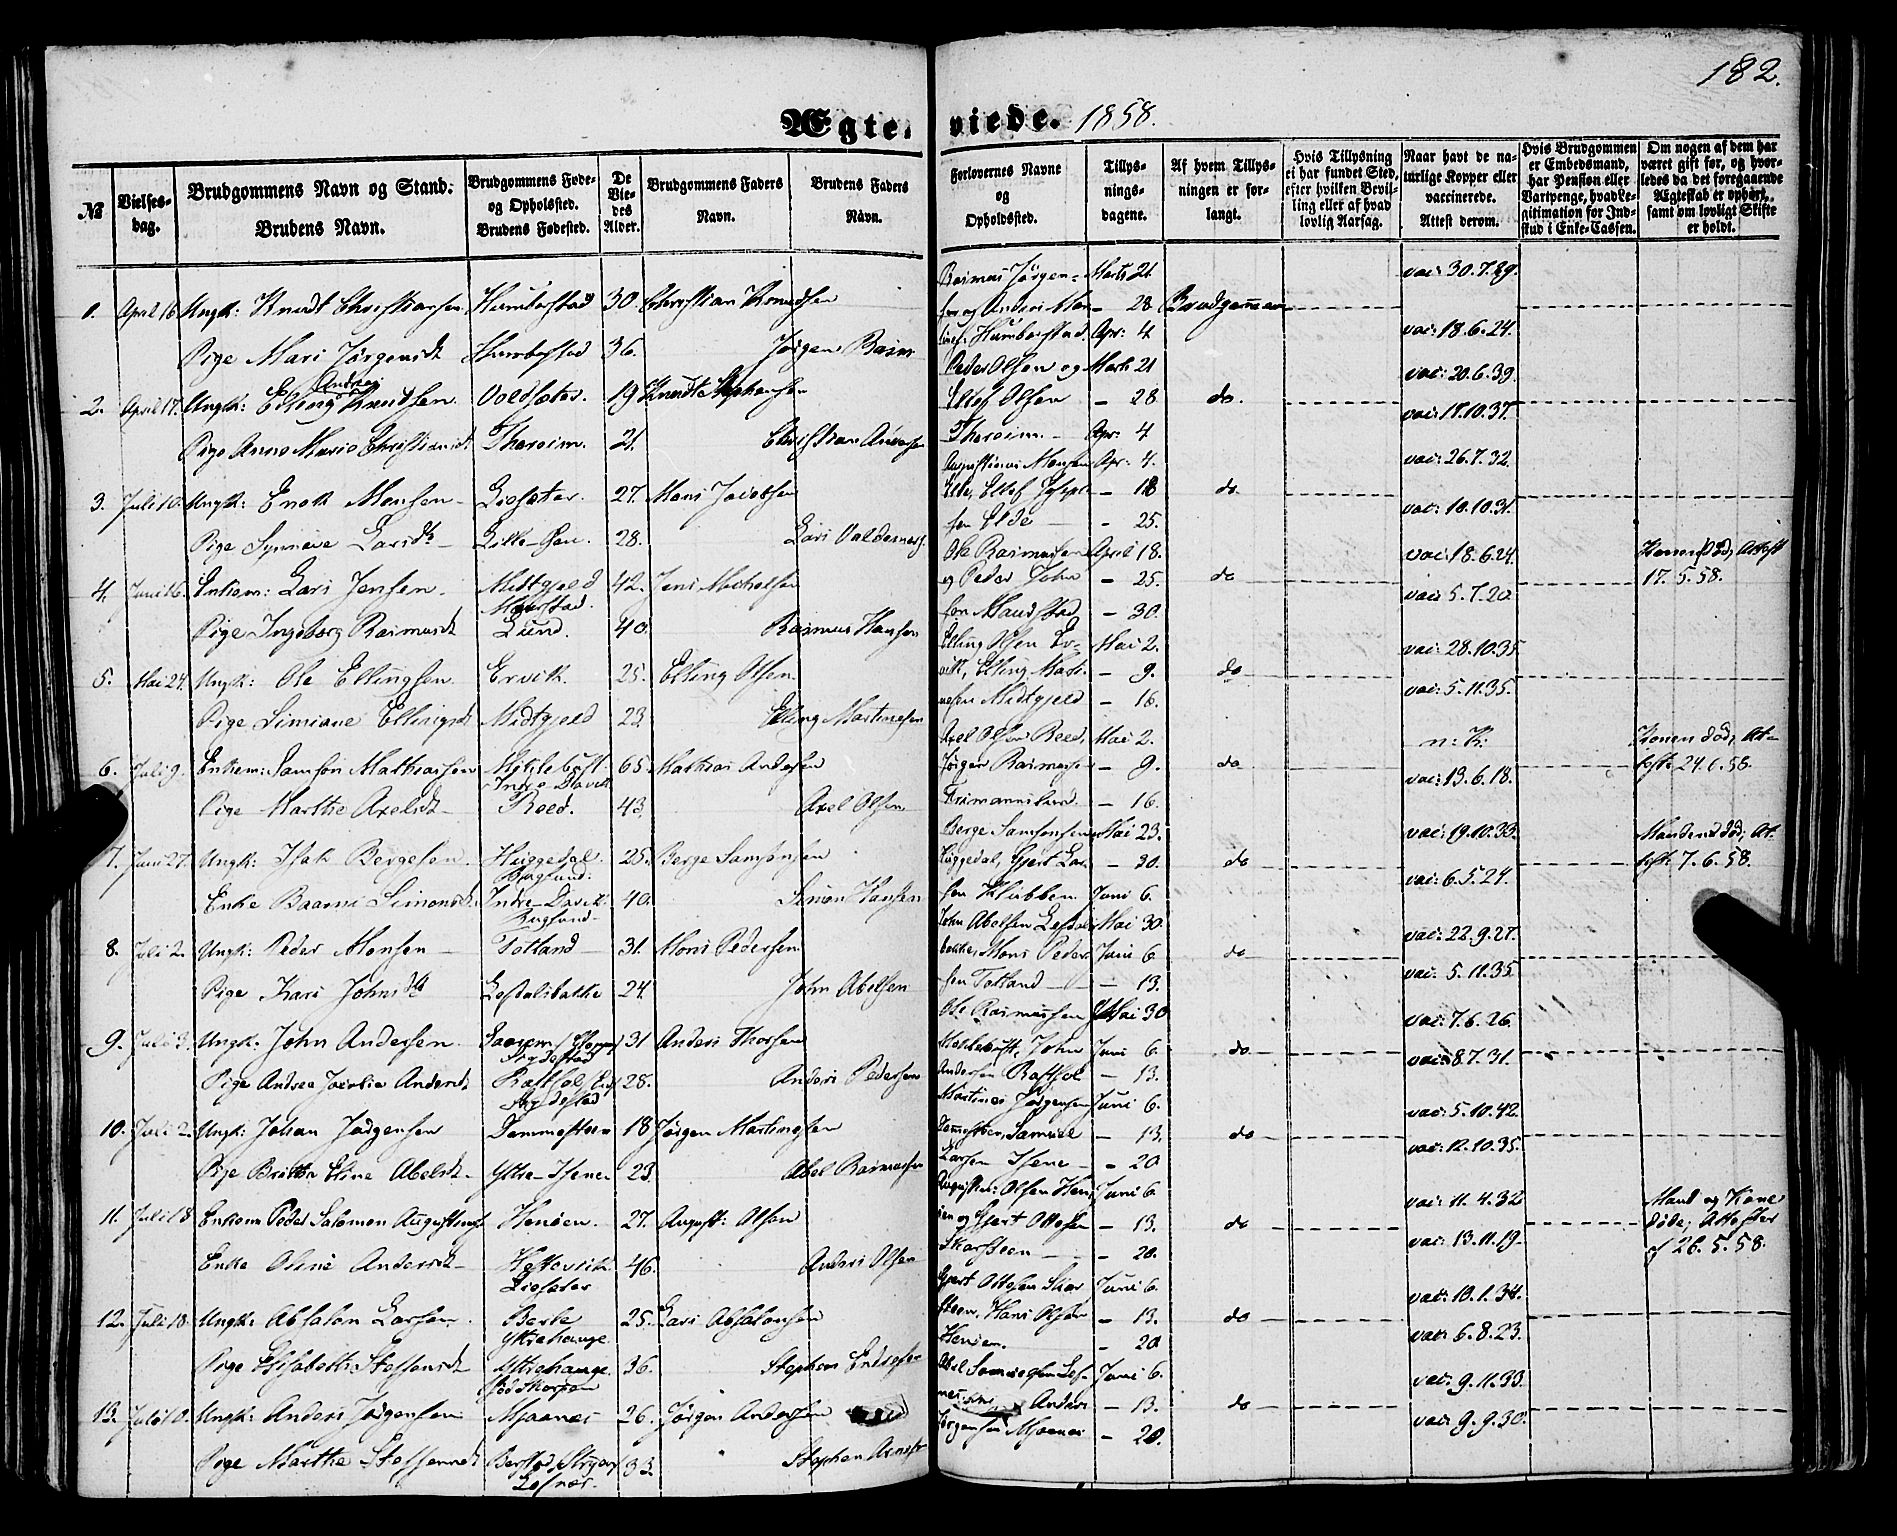 182.
Ægteviede. 1858.
№
Vielsesdag.
Brudgommens Navn og Stand.
Brudens Navn.
Brudgommens Føde- og Opholdsted.
Brudens Fødested.
De Viedes Alder.
Brudgommens Faders Navn.
Brudens Faders Navn.
Forlovernes Navne og Opholdsted.
Tillysningsdagene.
Af hvem Tillysningen er forlangt.
Hvis Tillysning ei har fundet Sted, efter hvilken Bevilling eller af hvad lovlig Aarsag.
Naar havt de naturlige Kopper eller vaccinerede. Attest derom.
Hvis Brudgommen er Embedsmand, har Pension eller Vartpenge, hvad Legitimation for Indskud i Enke-Cassen.
Om nogen af dem har været gift før, og hvorledes da det foregaaende Ægteskab er ophørt, samt om lovligt Skifte er holdt.
1. April 16 Ungk: Knudt Christiansen Humborstad 30. Christian Knudsen
Pige Mari Jørgensdt Humborstad 36. Jørgen Rasm
Rasmus Jørgen- Marts 21. vac: 30.7.29.
sen og Anders Mon - 28 Brudgommen
Humborstad. Apr: 4 vac: 18.6.24.
2. April 17. Ungk: Elling Andreas Knudtsen. Voldsæter. 19 Knudt Stephensen
Pige Anne Marie Christiansdt Thoreim. 21. Christian Andersen
Peder Olsen og Marts 21 vac: 20.6.39.
Ellef Olsen - 28 do.
Thoreim. Apr: 4 vac: 18.10.37.
3. Juli 10. Ungk: Enok Monsen Liesæter. 27. Mons Jacobsen
Pige Synneve Larsdt Lille-Gen. 28. Lars Valdemars.
Augustinus Monsen Apr: 4. vac: 26.7.32.
Elde, Ellef - 18 do.
sen Elde - 25. vac: 10.10.31.
4. Juni 16. Enkem: Lars Jensen. Midtgjeld Maurstad. 42. Jens Michelsen
Pige Ingeborg Rasmusdt Lund. 40. Rasmus Hansen
Ole Rasmussen April 18. vac: 18.6.24. Konen død, Attest
og Peder John - 25. do 17.5.58.
sen Maudstad - 30. vac: 5.7.20.
5. Mai 24. Ungk: Ole Ellingsen Ervik. 25. Elling Olsen
Pige Simiane Ellingsdt Midtgjeld 23. Elling Martinesen
Elling Olsen Er- Mai 2. vac: 28.10.35
vik, Elling Marti - 9. do
nesen Midtgjeld - 16. vac: 5.11.35.
6. Juli 9. Enkem: Samson Mathiassen Myklebost Indre-Davik 65. Mathias Andersen
Pige Marthe Axelsdt Reed. 43. Axel Olsen
Axel Olsen Reed, Mai 2. n: K: Konen død, At-
Jørgen Rasmusse - 9. do test. 24.6.58.
- 16. vac: 13.6.18.
7. Juni 27. Ungk: Isak Bergesen Huggedal. 25. Berge Samsonsen
Enke Simonsdt. Indre-Davik. 40. Simon Hansen
Berge Samsonsen Mai 23. vac: 19.10.33. Manden død, At.
Huggedal, Gjert Lar. - 30. do test 7.6.58.
sen Klubben Juni 6. vac: 6.5.24.
8. Juli 2. Ungk: Peder Monsen Totland 31. Mons Pedersen
Pige Kari Johnsdt Lefdalsbakke 24. John Abelsen
John Abelsen Lefdals Mai 30. vac: 22.9.27.
bakke, Mons Peder Juni 6 do
sen Totland - 13. vac: 5.11.35.
9. Juli 3. Ungk: John Andersen 31 Anders Thorsen
Pige Andrea Jacobia Andersdt Raftsol 28. Anders Pedersen
Ole Rasmussen Mai 30 vac: 7.6.26.
John Juni 6. do
Andersen Raftsol - 13. vac: 8.7.31.
10. Juli 2. Ungk: Johan Jørgensen Dommesteen 18 Jørgen Martinsen
Pige Eline Abelsdt. Ytre-Isene 23. Abel Rasmussen
Martines Jørgensen Juni 6. vac: 5.10.42.
Samuel - 13. do
Larsen Isene - 20 vac: 12.10.35.
11. Juli 18 Enkem Peder Salomon Augustinus Henøen. 27. August: Olsen
Enke Oline Andersdt Liesæter 46. Anders Olsen
August: Olsen Hen Juni 6 vac: 11.4.32 Mand og Kone
øen og Gjert Ottesen - 13. do døde; Attester
Skarsteen - 20. vac: 13.11.19. af 26.5.58.
12. Juli 18. Ungk: Absalon Larsen. Berle Ytrehauge 25. Lars Absalonsen
Pige Elisabeth Steffensdt Ytrehauge 36. Stephen Endresen
Gjert Ottesen Skar Juni 6. vac: 10.1.34.
steen, Hans Olsen - 13. do
Henøen. - 20 vac: 6.8.23.
13. Juli 10. Ungk: Anders Jørgensen 26. Jørgen Andersen
Pige Marthe Steffensdt 33. Stephen
Juni 6. vac: 9.11.33.
Anders - 13. do
Jørgensen - 20. vac: 9.9.30.